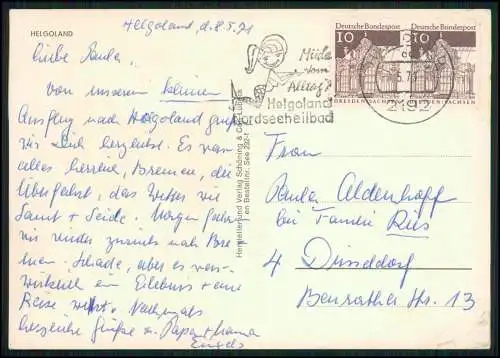 HELGOLAND
Helgoland, d. 8.5.71
Liebe Paula,
von unserem kleinen
Ausflug nach Helgoland grüßen
wir Dich herzlichst. Es war
alles herrlich, Bremen, die
Überfahrt, das Wetter wie
Samt + Seide. Morgen geht
wir wieder zurück nach Bre
men. Schade, aber es war
wirklich ein Erlebnis + eine
Reise wert. Nochmals
herzliche Grüße v. Papa + Mama
Engels
Hersteller und Verlag Schöning & Co., Lübeck
Deutsche Bundespost
10
DRESDEN/SACHSEN
Deutsche Bundespost
10
DRESDEN/SACHSEN
Müde
vom
Alltag?
Helgoland
Nordseeheilbad
5.71
2192
Frau
Paula Aldenhoff
bei Familie Ries
4 Düsseldorf
Benrather Str. 13